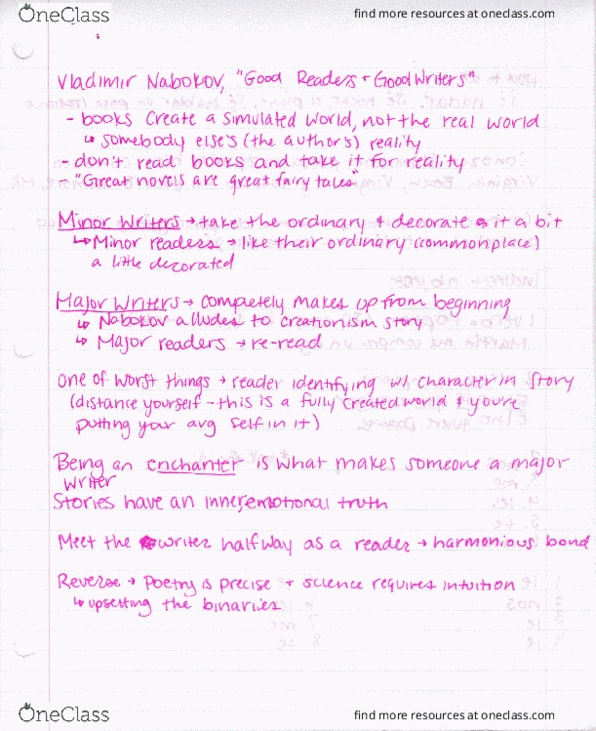 OneClass
find more resources at oneclass.com
Vladimir Nabokov, "Good Readers + Good Writers"
- books create a simulated world, not the real world
↳ somebody else's (the author's) reality
- don't read books and take it for reality
- "Great novels are great fairy tales"
Minor Writers → take the ordinary & decorate it a bit
↳ Minor readers → like their ordinary (commonplace)
a little decorated
Major Writers → completely makes up from beginning
↳ Nabokov alludes to creationism story
↳ Major readers → re-read
One of worst things → reader identifying w/ character in story
(distance yourself - this is a fully created world & you're
putting your avg self in it)
Being an enchanter is what makes someone a major
writer
Stories have an inner, emotional truth
Meet the writer halfway as a reader → harmonious bond
Reverse → Poetry is precise + science requires intuition
↳ upsetting the binaries
OneClass
find more resources at oneclass.com